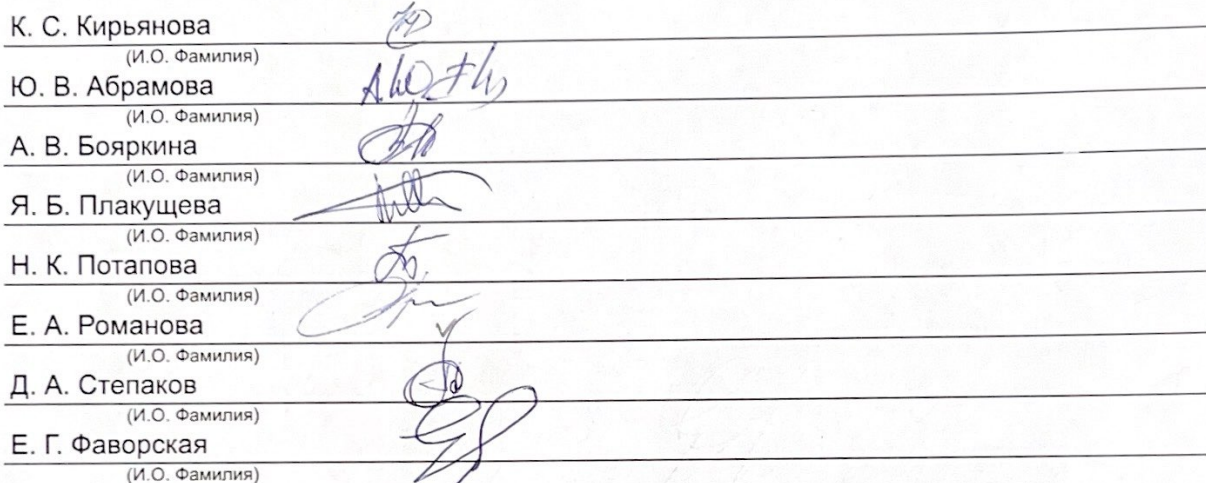 К. С. Кирьянова
(И.О. Фамилия)
Ю. В. Абрамова
(И.О. Фамилия)
А. В. Бояркина
(И.О. Фамилия)
Я. Б. Плакущева
(И.О. Фамилия)
Н. К. Потапова
(И.О. Фамилия)
Е. А. Романова
(И.О. Фамилия)
Д. А. Степаков
(И.О. Фамилия)
Е. Г. Фаворская
(И.О. Фамилия)